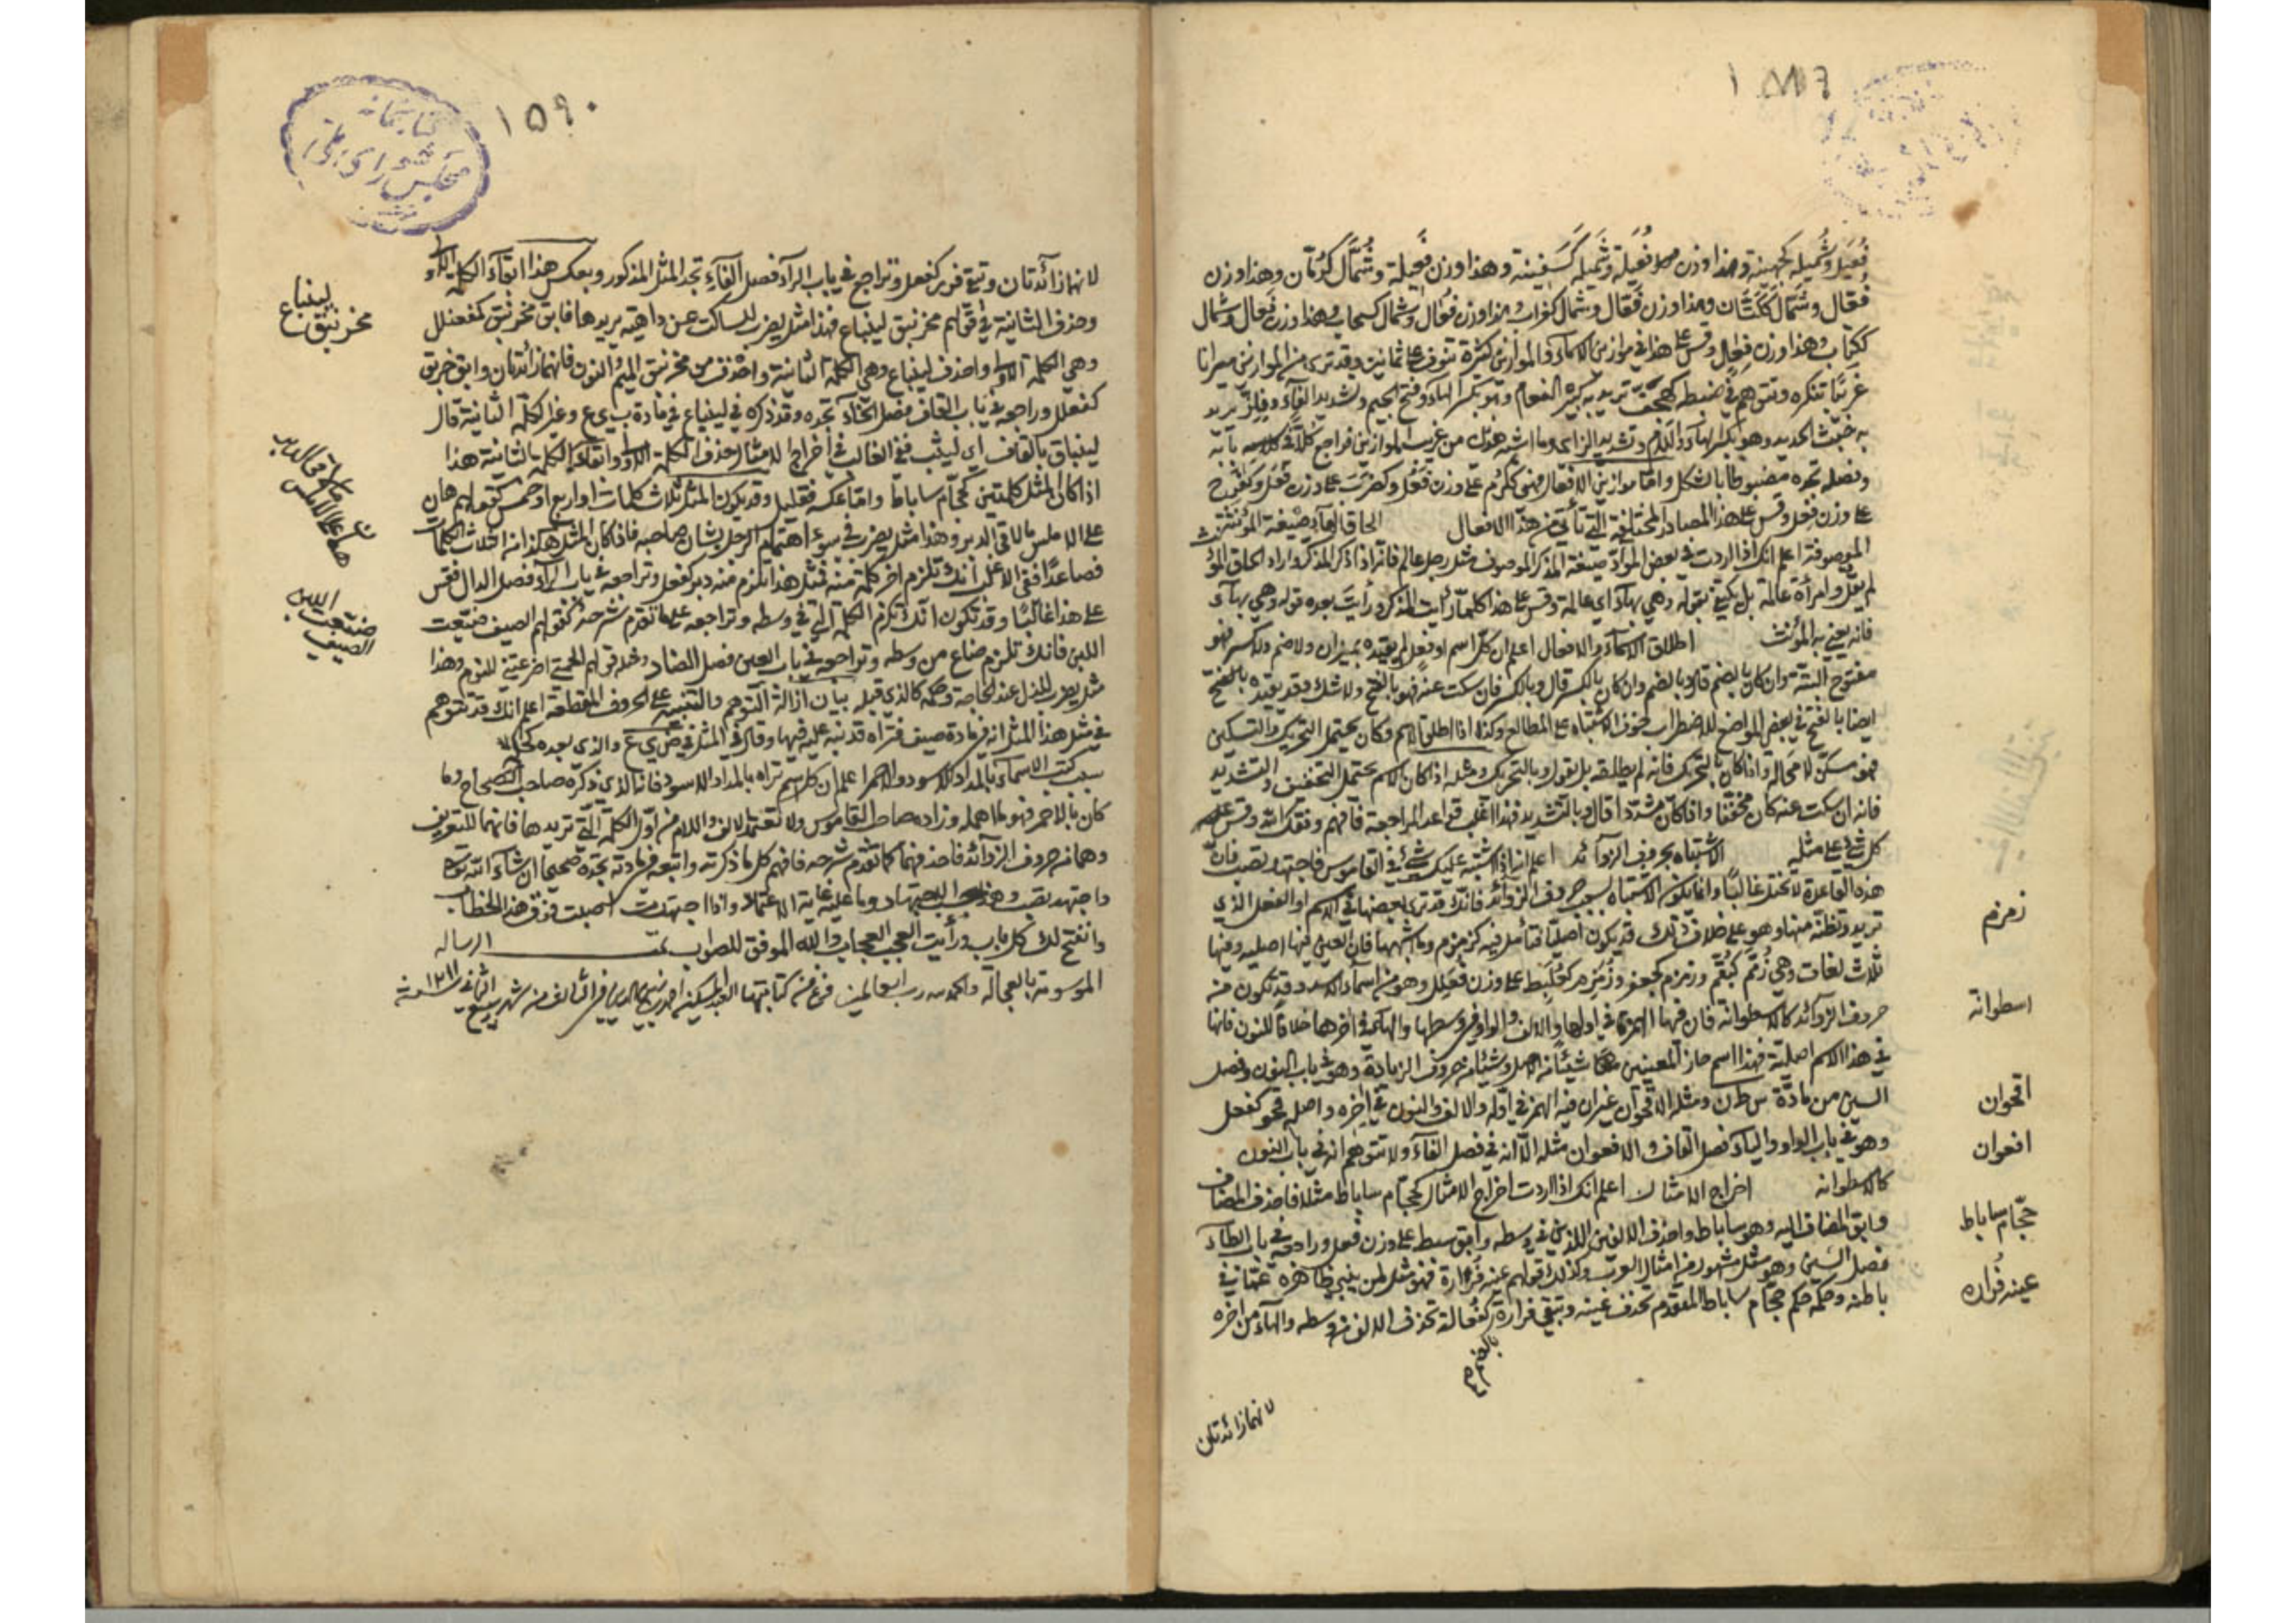 فُعَيل وشُميله كجهينة وهذا وزن فعيلة وشَميله كَسَفينة وهذا وزن فَعيلة وشُمّال كرُمّان وهذا وزن
فُعّال وشَمّال ككَتّان وهذا وزن فَعّال وشُمال كغراب وهذا وزن فُعال وشَمال كسحاب وهذا وزن فَعال وشمال
ككتاب وهذا وزن فِعال وقس على هذا في موازين الاسماء والموازين كثيرة تنوف على ثمانين وقد ترى من الموازين ميزانا
غريبًا تنكره وتتوهم في ضبطه كهجف تريد به كبير النعام وهو بكسر الهاء وفتح الجيم وتشديد الفاء وفلز تريد
به خبث الحديد وهو بكسر الفاء واللام وتشديد الزاي وما اشبه هذين من غريب الموازين فراجع كلاً في بابه
وفصله تجده مضبوطا بالشكل واما موازين الافعال فهي ككرُم على وزن فعُل وكضرب على وزن فعَل وكفرح
على وزن فعل وقس على هذا المصادر المختلفة التي تأتي من هذه الافعال الحاق الهاء بصيغة المؤنث
الموصوفة اعلم انك اذا اردت في بعض المواد صيغة المذكر الموصوف مثل رجل عالم فانه اذا ذكر المذكر واراد الحاق المؤنث
لم يقل وامرأة عالمة بل يكتفي بقوله وهي بهاء اي عالمة وقس على هذا كلما رأيت المذكر ورأيت بعده قوله وهي بهاء
فانه يعني به المؤنث اطلاق الاسماء والافعال اعلم ان كل اسم او فعل لم يقيده بميزان ولا ضم ولا كسر فهو
مفتوح البتة وان كان بالضم قال وبالضم وان كان بالكسر قال وبالكسر فان سكت عنه فهو بالفتح ولا شك وقد يقيده بالفتح
ايضا بالفتح في بعض المواضع للاضطراب خوف الاشتباه على المطالع وكذا اذا اطلق الاسم وكان يحتمل التحريك والتسكين
فهو مسكن لا محالة واذا كان بالتحريك فانه لم يطلقه بل يقول وبالتحريك ومثله اذا كان الاسم يحتمل التخفيف والتشديد
فانه ان سكت عنه كان مخففا واذا كان مشددا قال وبالتشديد فهذا اغلب قواعد المراجعة فافهم وفقك الله وقس على
كل شيء على مثله الاشتباه بحروف الزوائد اعلم انه اذا اشتبه عليك شيء في القاموس فاجتهد تصب فان
هذه القاعدة لا تختل غالبًا وانما يكون الاشتباه بسبب حروف الزوائد فانك قد ترى بعضها في الاسم او الفعل الذي
تريد وتظنه منها وهو على خلاف ذلك قد يكون اصليا فتأمل فيه كزمزم وما اشبهها فان الميم فيها اصليه وفيها
ثلاث لغات وهي زُمّم كبُقّم وزمزم كجعفر وزُمَزِم كعُلَبِط على وزن فُعَلِل وهو من اسماء الاسد وقد تكون منه
حروف الزوائد كالاسطوانة فان فيها الهمزة في اولها والالف والواو في وسطها والهاء في اخرها خلافا للنون فانها
في هذا الاسم اصلية فهذا اسم حاز المعنيين معا شيئا من الاصل وشيئا من حروف الزيادة وهو في باب النون وفصل
السين من مادة س ط ن ومثله الاقحوان غير ان فيه الهمز في اوله والالف والنون في اخره واصله قحو كفعل
وهو في باب الواو والياء فصل القاف والافعوان مثله الا انه في فصل الفاء ولا تتوهم انه في باب النون
كالاسطوانه اخراج الامثال اعلم انك اذا اردت اخراج الامثال كحجام ساباط مثلا فاحذف المضاف
وابق المضاف اليه وهو ساباط واحذف الالفين اللذين في وسطه وابق سبط على وزن فعل وراجعه في باب الطاء
فصل السين وهو مثل مشهور من امثال العرب وكذلك قولهم عينه فراره فهو مثل لمن ينبي ظاهره عما في
باطنه وحكمه حكم حجام ساباط المتقدم تحذف عينه وتبقي فرارة كفعالة تحذف الالف من وسطه والهاء من اخره
بالضم
لانهما زائدتان
زمزم
اسطوانة
اقحوان
افعوان
حجّام ساباط
عينه فُراره
١٥٩٠
كتابخانه
مجلس شورای ملی
لانهما زائدتان وتبقى فرر كفعل وتراجع في باب الراء فصل الفاء تجد المثل المذكور وبعكس هذا ابقاء الكلمة الاولى
وحذف الثانية في قولهم مخرنبق لينباع فهذا مثل يضرب للساكت عن داهية يريدها فابق مخرنبق كمفعنلل
وهي الكلمة الاولى واحذف لينباع وهي الكلمة الثانية واحذف من مخرنبق الميم والنون فانهما زائدتان وابق خربق
كفعلل وراجعه في باب القاف فصل الخاء تجده وقد ذكره في لينباع في مادة ب ي ع وغير الكلمة الثانية قال
لينباق بالقاف اي ليثب ففي الغالب في اخراج الامثال حذف الكلمة الاولى وابقاء الكلمة الثانية هذا
اذا كان المثل كلمتين كحجام ساباط واما عكسه فقليل وقد يكون المثل ثلاث كلمات او اربع او خمس كقولهم هان
على الاملس ما لاقى الدبر وهذا مثل يضرب في سوء اهتمام الرجل بشان صاحبه فاذا كان المثل هكذا من ثلاث الكلمات
فصاعدًا ففي الاغلب انك تلزم اخر كلمة منه فمثل هذا تلزم منه دبر كفعل وتراجعه في باب الراء فصل الدال فقس
على هذا غالبًا وقد تكون انك تلزم الكلمة التي في وسطه وتراجعه على ما تقدم شرحه كقولهم الصيف ضيعت
اللبن فانك تلزم ضاع من وسطه وتراجعه في باب العين فصل الضاد ومثله قولهم الحمى اضرعتني للنوم وهذا
مثل يضرب للذل عند الحاجة وحكمه كالذي قبله بيان ازالة التوهم والتنبيه على الحروف المقطعة اعلم انك قد تتوهم
في مثل هذا المثل انه في مادة صيف فتراه قد نبه عليه فيها وقال في المثل في ض ي ع والذي بعده كذلك
سبب كتب الاسماء بالمداد الاسود والاحمر اعلم ان كل اسم تراه بالمداد الاسود فانه الذي ذكره صاحب الصحاح وما
كان بالاحمر فهو لما اهمله وزاده صاحب القاموس ولا تعتمد الالف واللام من اول الكلمة التي تريدها فانهما للتعريف
وهما من حروف الزوائد فاحذفهما كما تقدم شرحه فافهم كل ما ذكرته واتبعه في مادته تجده صحيحا ان شاء الله تعالى
واجتهد تصب وهذا بحسب الاجتهاد وما عليه غاية الاعتماد واذا اجتهدت اصبت فوق هذا الخطاب
وانفتح لك كل باب ورأيت العجب العجاب والله الموفق للصواب تمت الرساله
الموسومة بالعجالة والحمد لله رب العالمين فرغ من كتابتها العبد المسكين احمد بن زين الدين في الثالث من شهر ربيع الثاني سنة ١٢١١
لينباع
مخرنبق
هان على الاملس ما لاقى الدبر
الصيف
ضيعت
اللبن